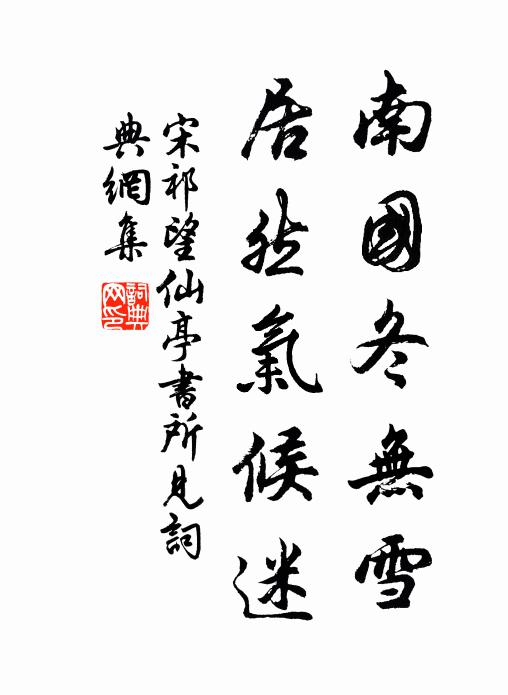 南國冬無雪
居然氣候迷
宋祁望仙亭書所見詞
典網集
詞典
网印